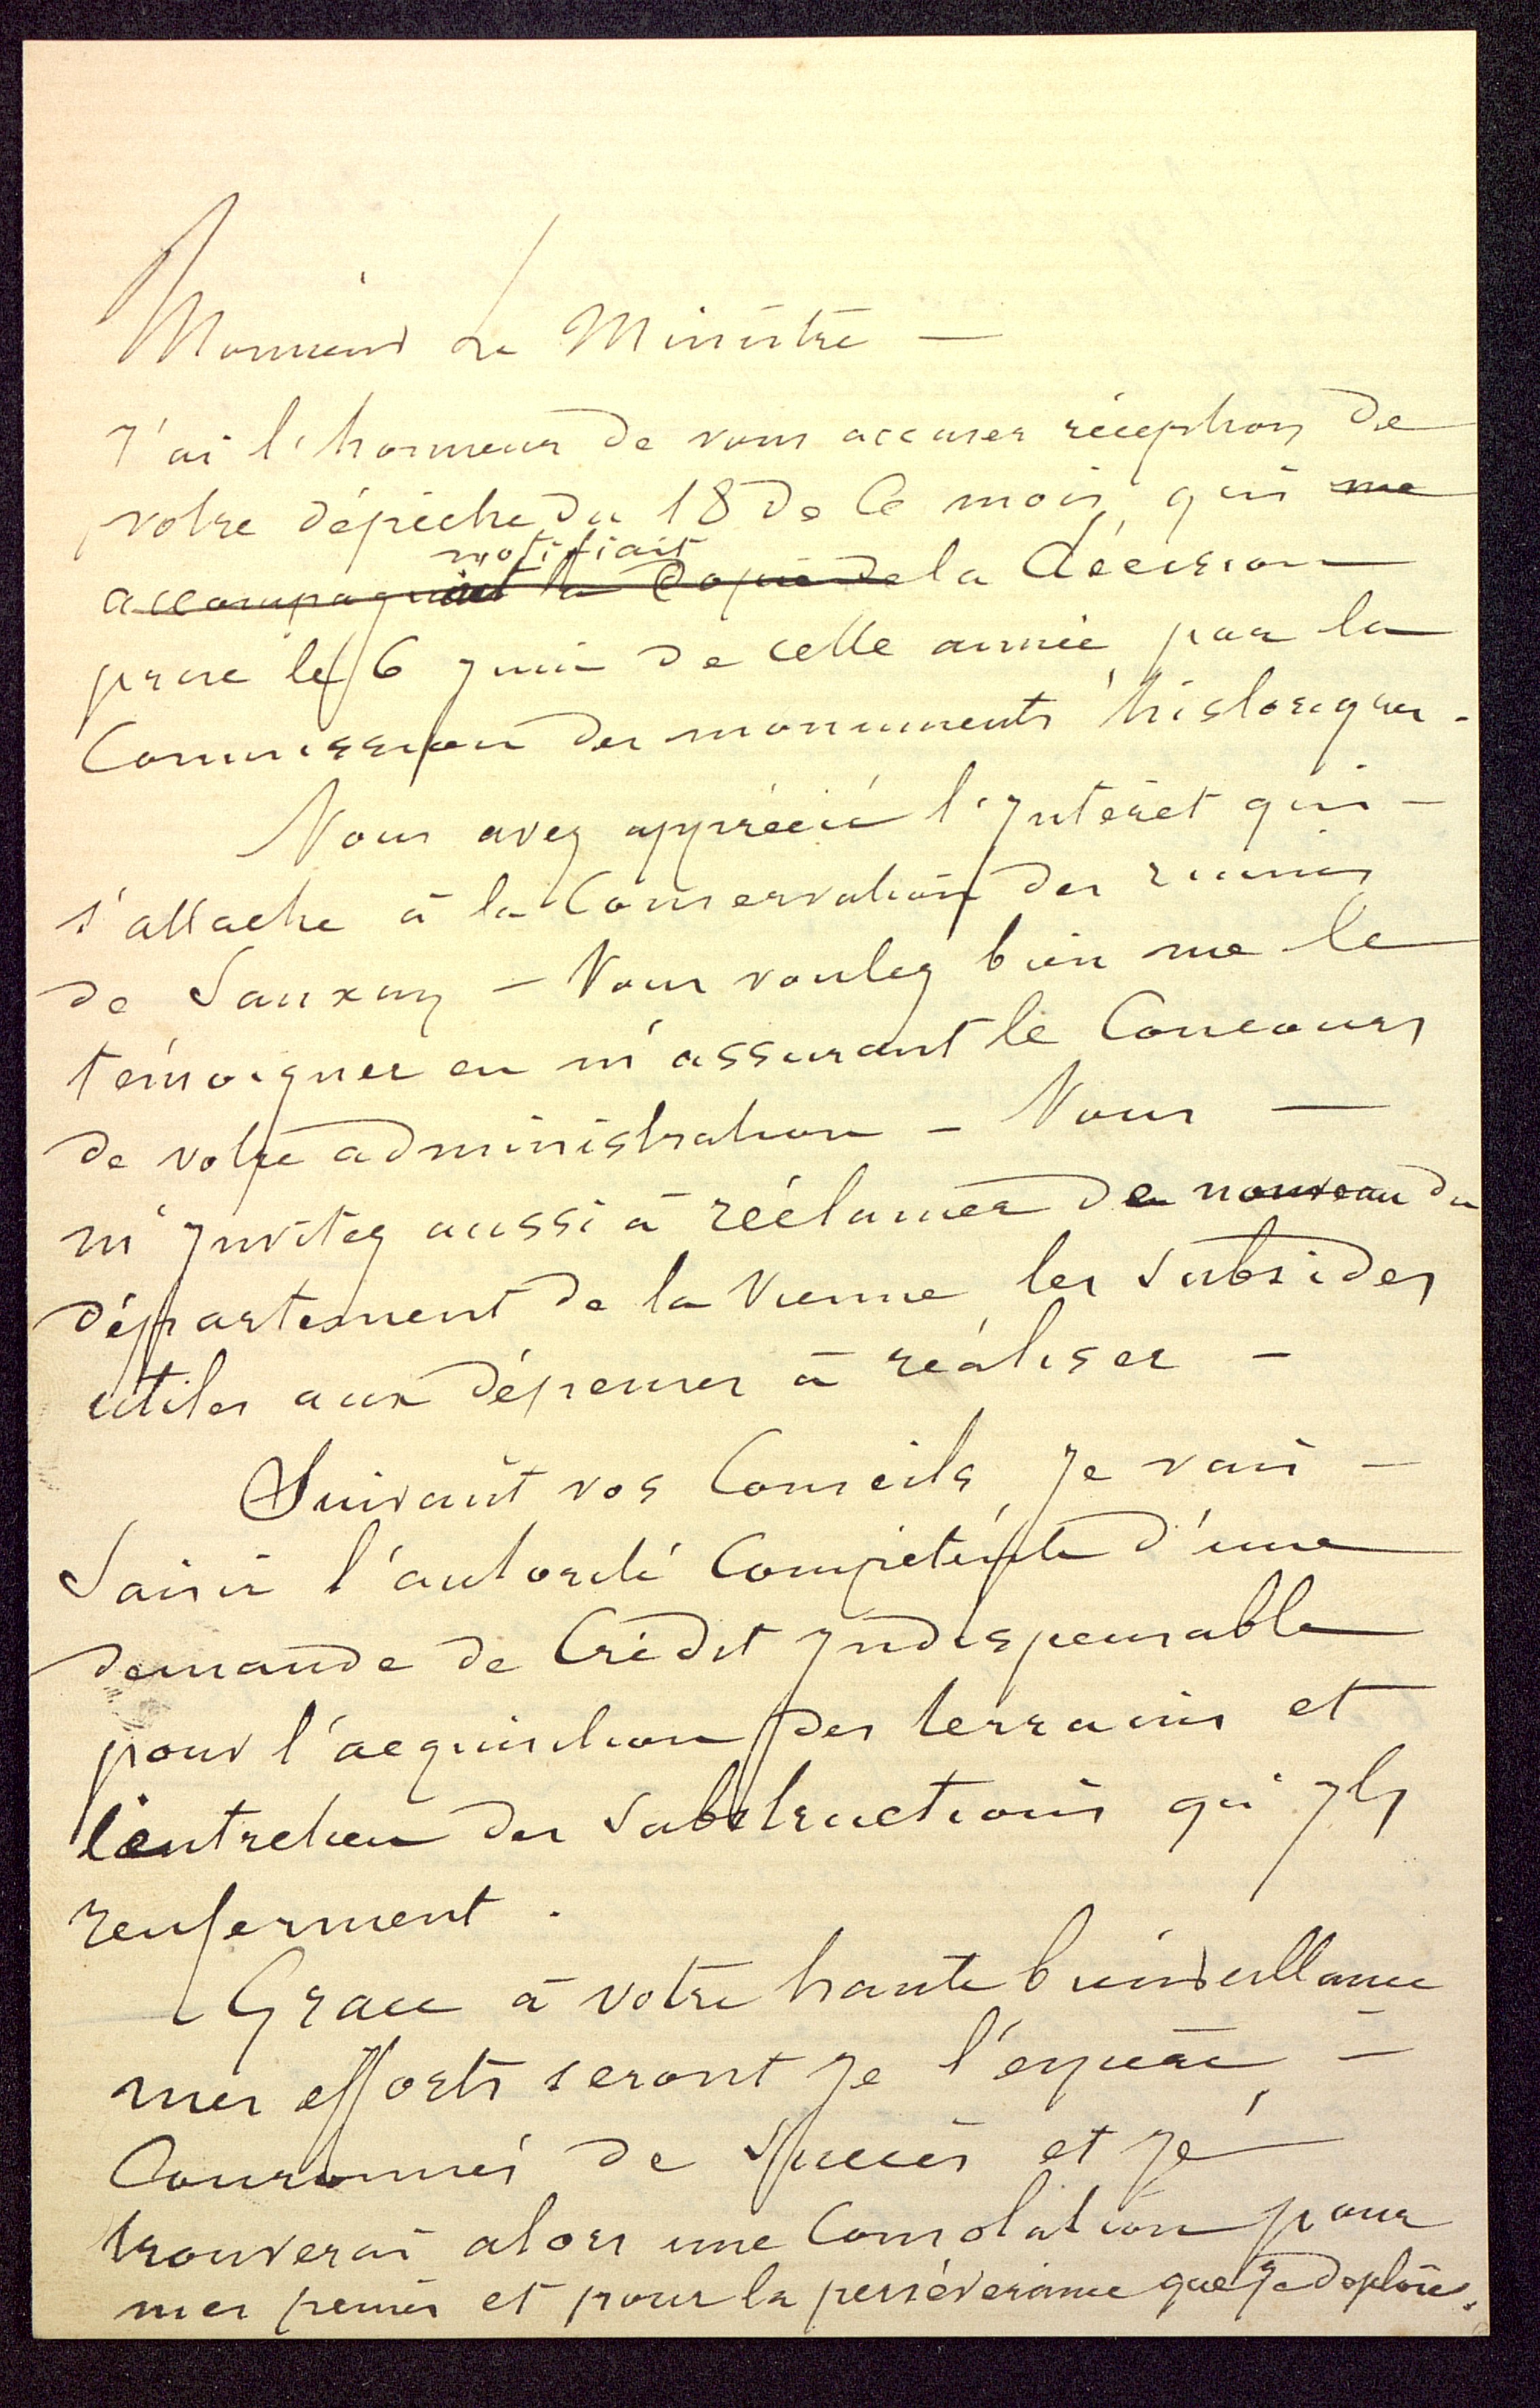 Monsieur Le Ministre —
J'ai l'honneur de vous accuser réception de
votre dépêche du 18 de ce mois, qui me
notifiait
accompagnait la Copie de la décision
prise le 6 juin de cette année par la
Commission des monuments historiques.
Vous avez apprécié l'Intérêt qui —
s'attache à la Conservation des ruines
de Sanxay — Vous voulez bien me le
témoigner en m'assurant le Concours
de votre administration — Vous —
m'Invitez aussi à réclamer de nouveau du
département de la Vienne les subsides
utiles aux dépenses à réaliser —
Suivant vos Conseils, Je vais —
Saisir l'autorité Compétente d'une
demande de Crédit Indispensable
pour l'acquisition des terrains et
l'entretien des Substructions qu'Ils
renferment.
Grace à votre haute bienveillance
mes efforts seront Je l'espère, —
Couronnés de Succès et Je
trouverai alors une Consolation pour
mes peines et pour la perséverance que Je déploie.